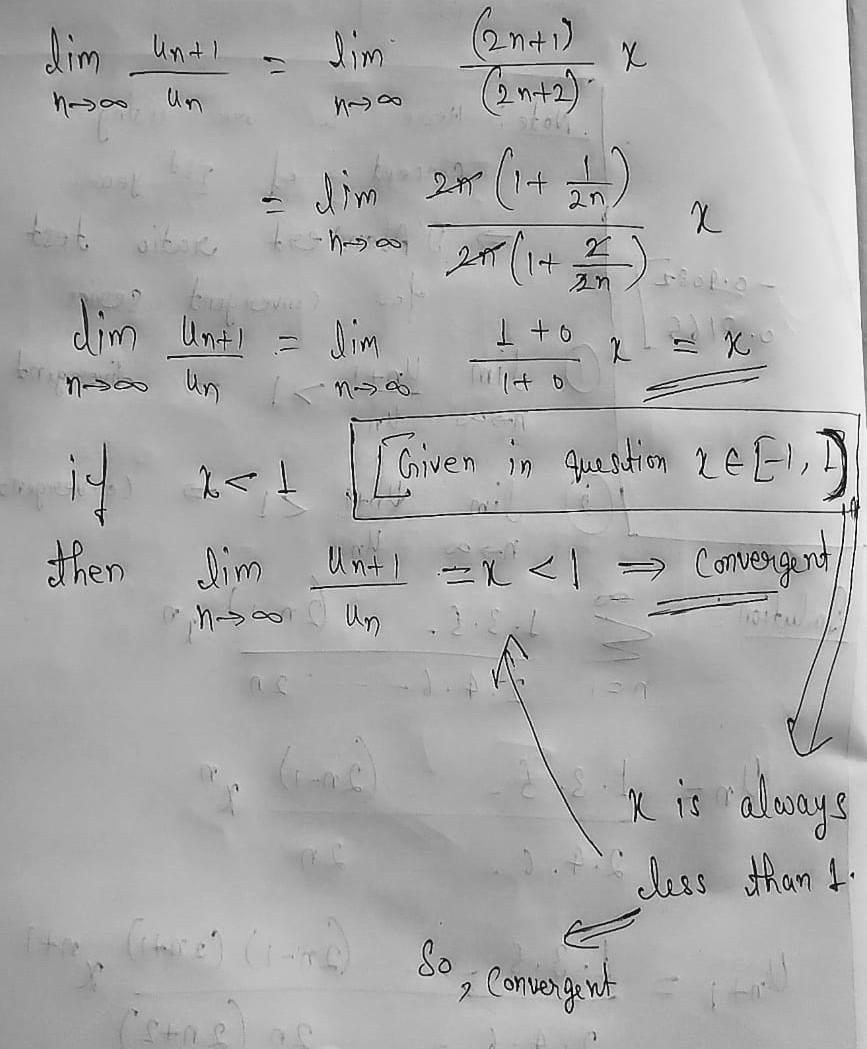 lim n→∞ Un+1/Un = lim n→∞ (2n+1)/(2n+2) x
= lim n→∞ 2n(1 + 1/2n) / 2n(1 + 2/2n) x
lim n→∞ Un+1/Un = lim n→∞ 1+0/1+0 x = x
if x < 1 [Given in question x ∈ [-1, 1)]
then lim n→∞ Un+1/Un = x < 1 ⇒ Convergent
x is always
less than 1.
So, Convergent